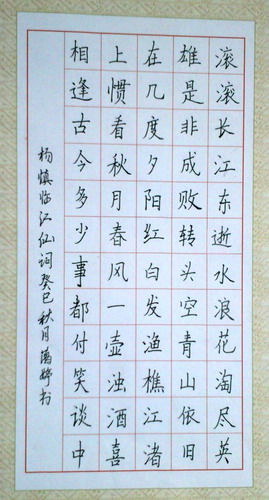 滚滚长江东逝水浪花淘尽英
雄是非成败转头空青山依旧
在几度夕阳红白发渔樵江渚
上惯看秋月春风一壶浊酒喜
相逢古今多少事都付笑谈中
杨慎临江仙词癸巳秋月婷书